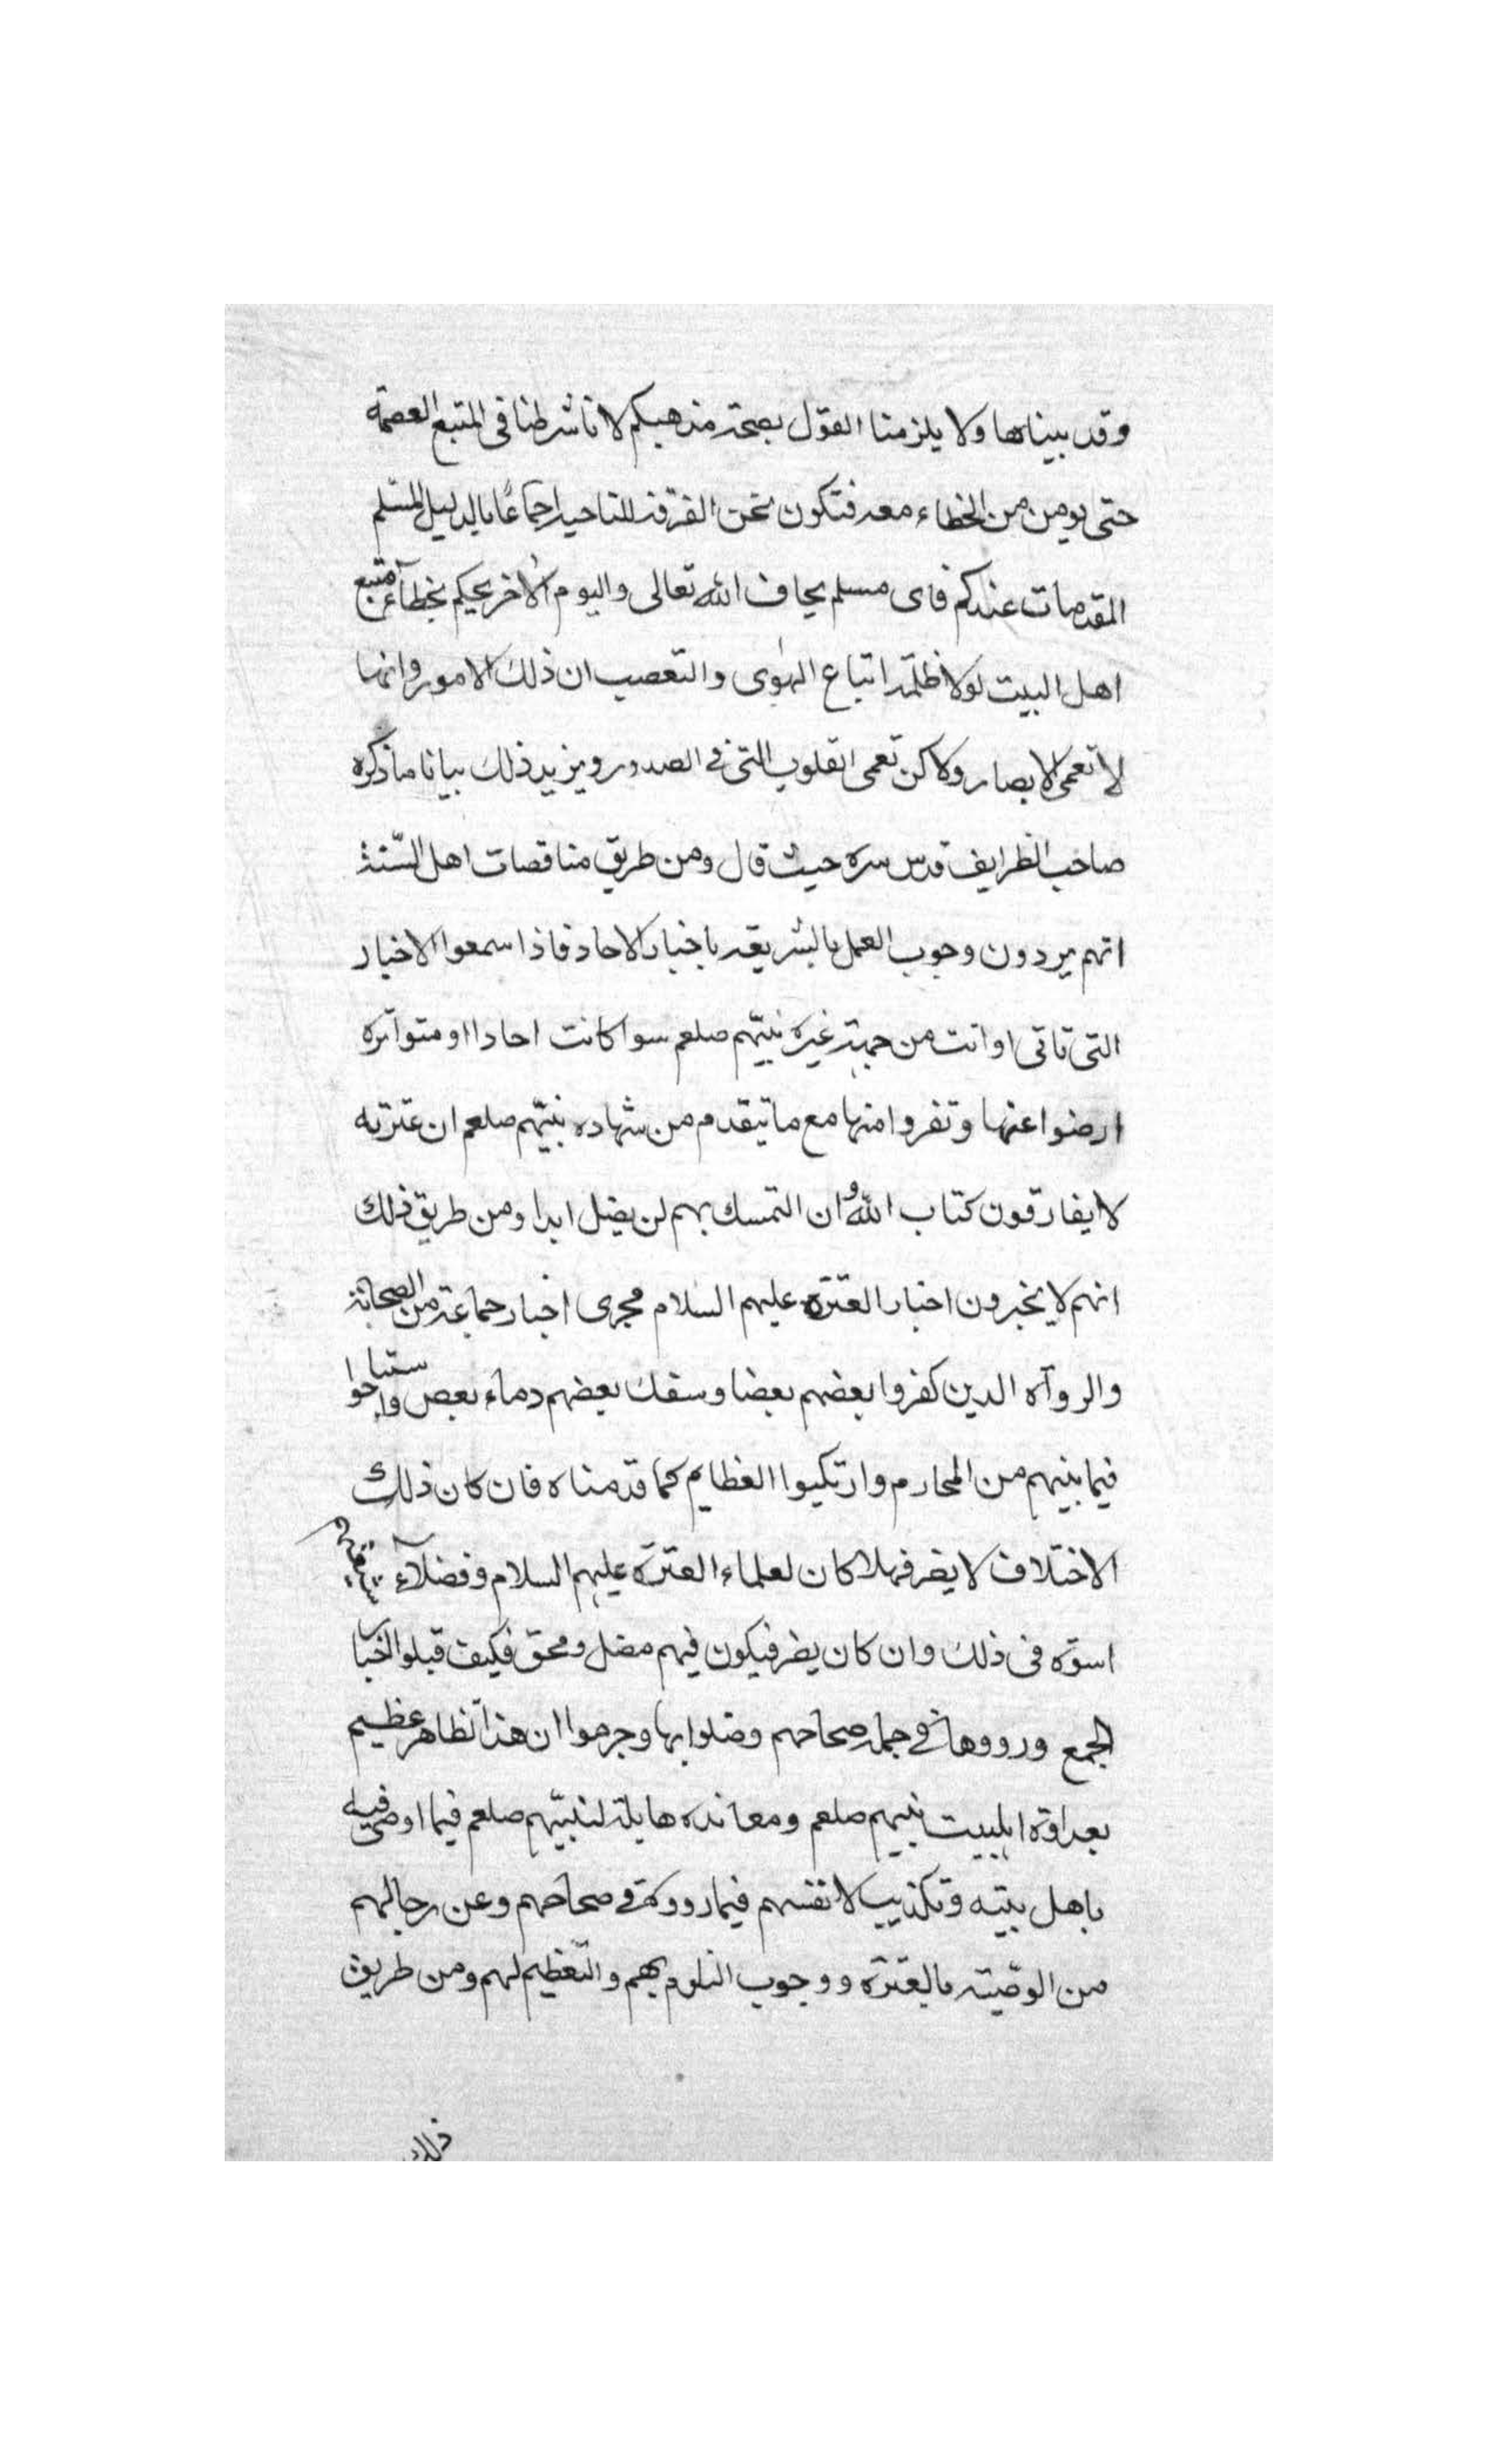 وقد بيناها ولا يلزمنا القول بصحة مذهبكم لانا شرطنا فى المتبع العصمة
حتى يومن من الخطاء معه فتكون نحن الفرقة الناجية اجماعًا بالدليل المسلم
المقدمات عندكم فاى مسلم يخاف الله تعالى واليوم الاخر يحكم بخطآء متبع
اهل البيت لولا ظلمة اتباع الهوى والتعصب ان ذلك الامور وانها
لا تعمى الابصار ولاكن تعمى القلوب التى فى الصدور ويزيد ذلك بيانا ما ذكره
صاحب الطرايف قدس سره حيث قال ومن طريق مناقصات اهل السّنة
انهم يردون وجوب العمل بالشريعة باخبار الاحاد فاذا سمعوا الاخبار
التى تاتى او اتت من جهة غيره نبيّهم صلعم سوا كانت احادا او متواتره
ارضوا عنها وتفروا منها مع ما تيقدم من شهاده نبيّهم صلعم ان عترته
لا يفارقون كتاب الله وان التمسك بهم لن يضل ابدا ومن طريق ذلك
انهم لا يخبرون اخبار العترة عليهم السلام مجرى اخبار جماعة من الصحابة
والروآه الدين كفروا بعضهم بعضا وسفك بعضهم دماء بعض واستباحوا
فيما بينهم من المحارم وارتكبوا العظايم كما قدمناه فان كان ذلك
الاختلاف لا يضر فهلا كان لعلماء العترة عليهم السلام وفضلآء شيعتهم
اسوة فى ذلك وان كان يضر فيكون فيهم مضل ومحق فكيف قبلوا اخبار
الجمع ورووها فى جملة صحاحهم وضلوا بها وجرموا ان هذا لظاهر عظيم
بعداوة اهلبيت نبيهم صلعم ومعانده هايلة لنبيّهم صلعم فيما اوصى فيه
باهل بيته وتكذيب لانفسهم فيما رووه فى صحاحهم وعن رجالهم
من الوصّية بالعترة ووجوب التلوم بهم والتّعظيم لهم ومن طريق
ذلك